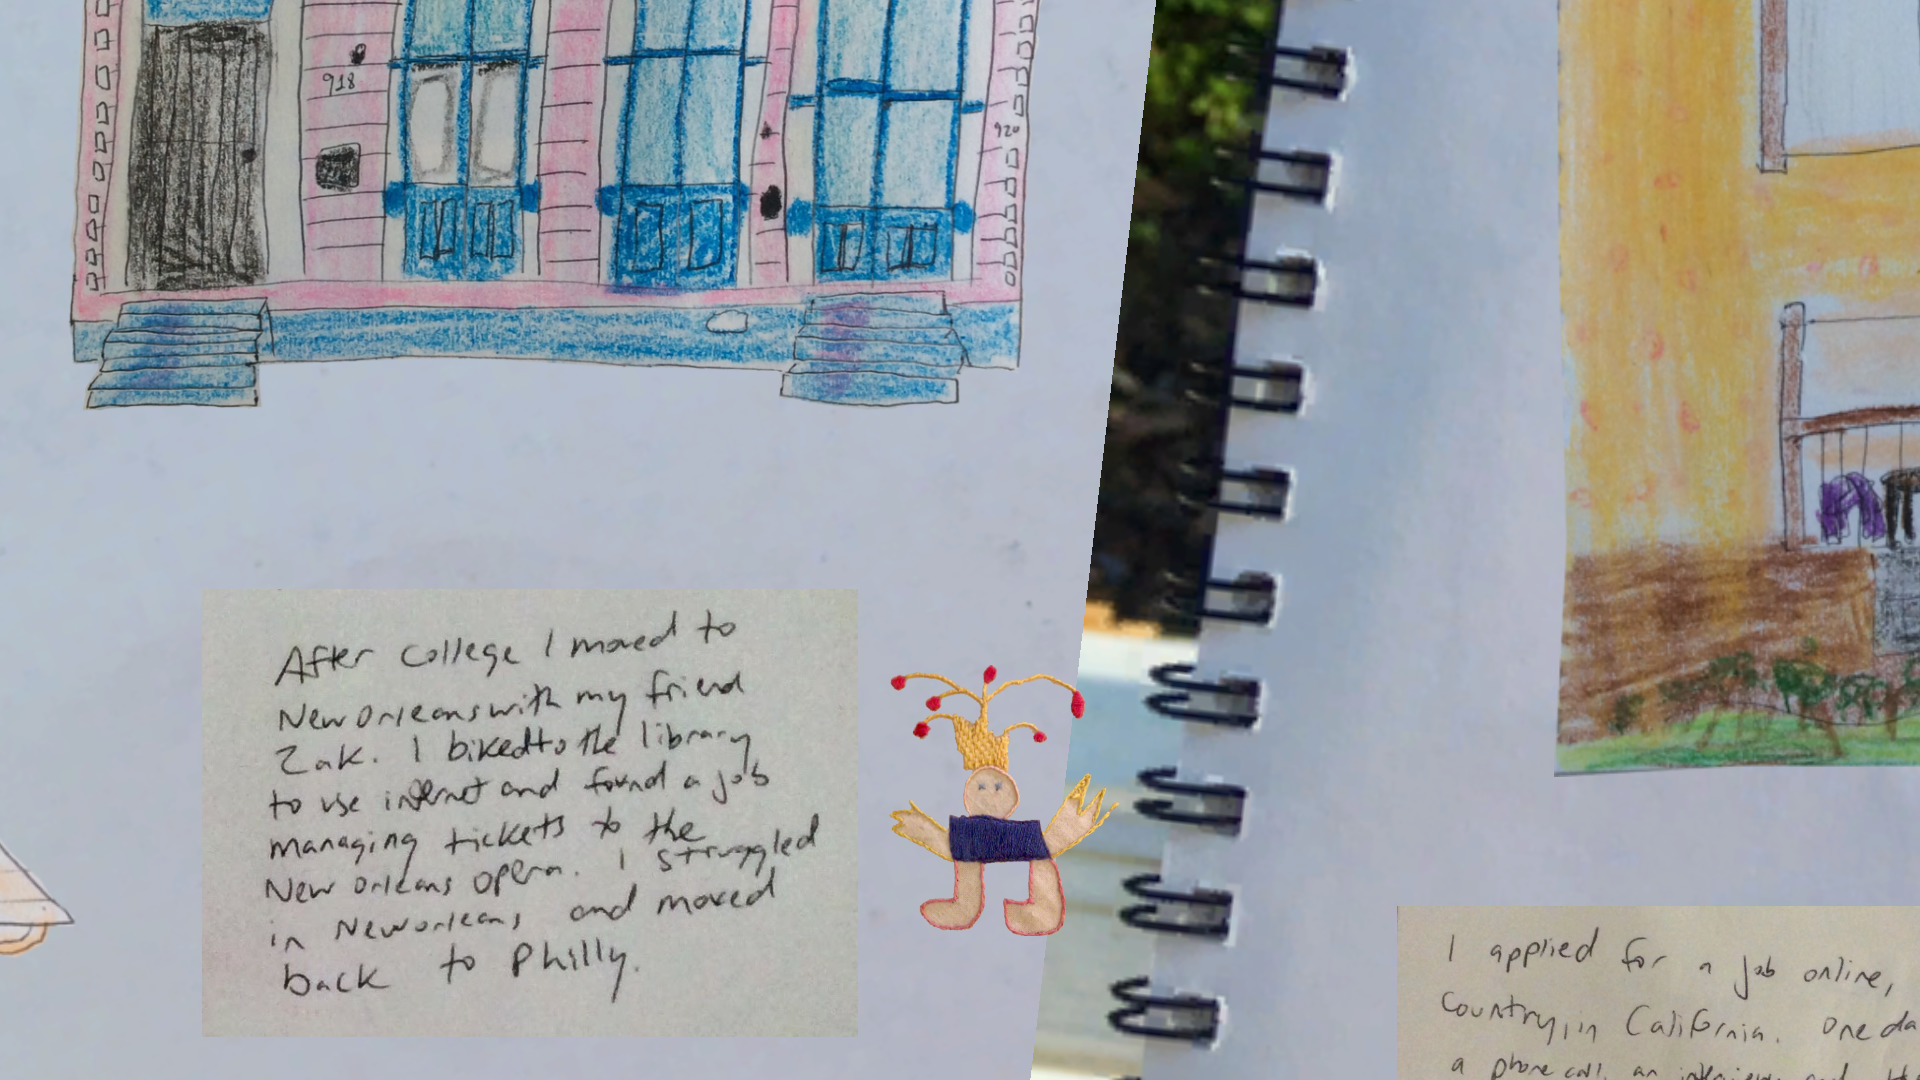 918
920
After College I moved to
New Orleans with my friend
Zak. I biked to the library
to use internet and found a job
managing tickets to the
New Orleans opera. I struggled
in New Orleans and moved
back to Philly.
I applied for a job online,
Country, in California. One da
a phone call, an interview and